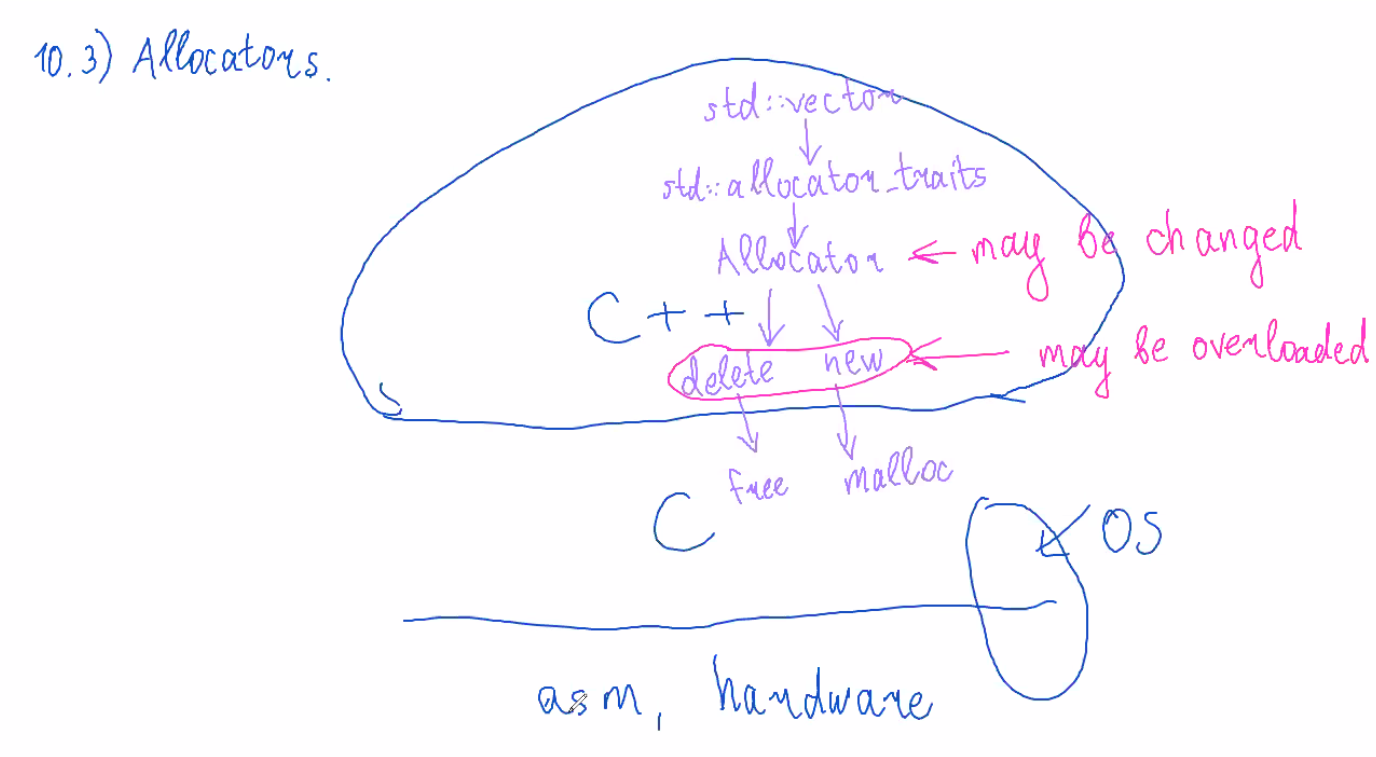 10.3) Allocators.
std::vector
std::allocator_traits
Allocator ← may be changed
C++
delete new ← may be overloaded
free malloc
C
OS
asm, hardware